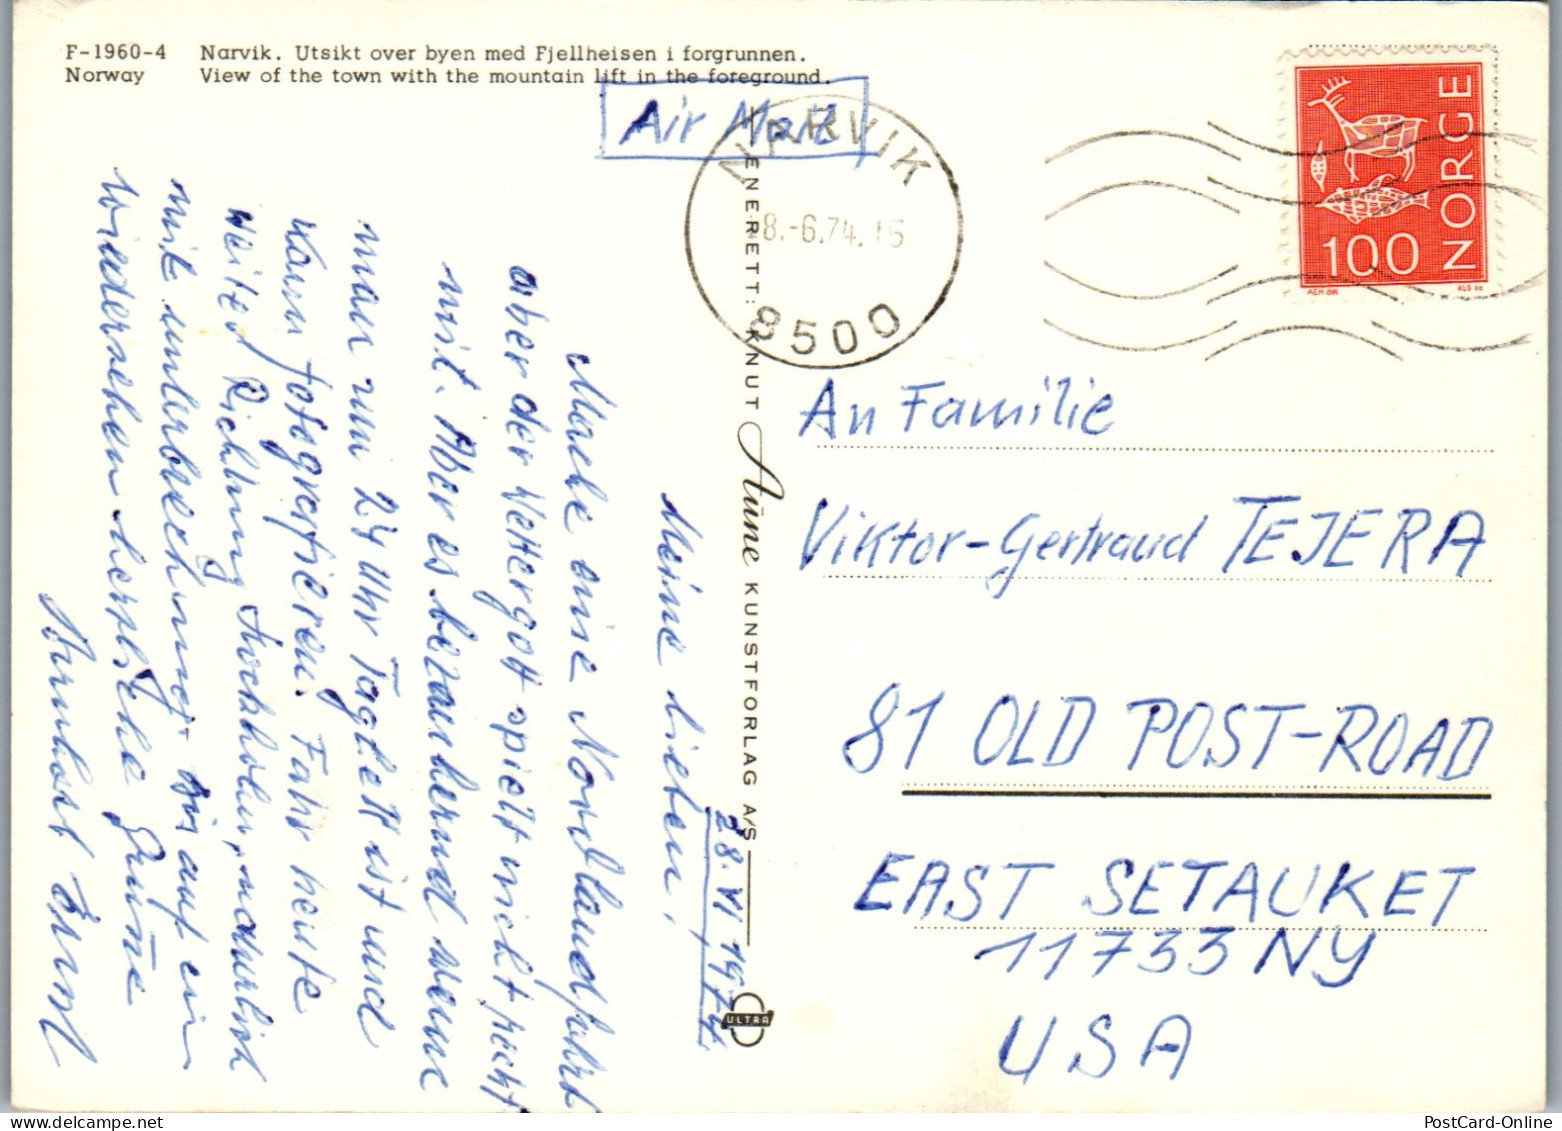 F-1960-4 Narvik. Utsikt over byen med Fjellheisen i forgrunnen.
Norway View of the town with the mountain lift in the foreground.
Air Mail
NARVIK
8.-6.74.15
8500
NORGE
100
AEH del.
KUS sc
ENERETT: KNUT Aune KUNSTFORLAG A/S
ULTRA
28. VI 1974.
Meine Lieben,
Mache eine Nordlandfahrt
aber der Wettergott spielt nicht recht
mit. Aber es bezaubernd wenn
man um 24 Uhr Taghell ist und
kann fotografieren. Fahr heute
weiter Richtung Stockholm, natürlich
mit Unterbrechung. Bis auf ein
wiedersehen herzliche Grüße
Ernst
An Familie
Viktor-Gertraud TEJERA
81 OLD POST-ROAD
EAST SETAUKET
11733 NY
USA
PostCard-Online